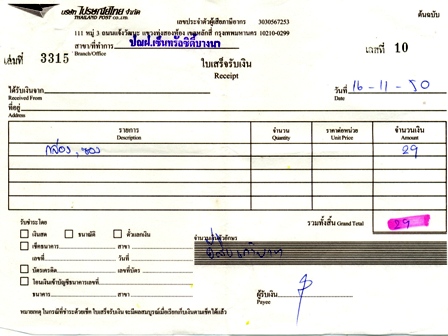 บริษัท ไปรษณีย์ไทย จำกัด
THAILAND POST CO.,LTD.
ต้นฉบับ
เลขประจำตัวผู้เสียภาษีอากร 3030567253
111 หมู่ 3 ถนนแจ้งวัฒนะ แขวงทุ่งสองห้อง เขตหลักสี่ กรุงเทพมหานคร 10210-0299
สาขา/ที่ทำการ ปณฝ.เซ็นทรัลซิตี้บางนา
Branch/Office
เล่มที่ 3315
เลขที่ 10
ใบเสร็จรับเงิน
Receipt
ได้รับเงินจาก
Received From
วันที่ 16-11-50
Date
ที่อยู่
Address
รายการ จำนวน ราคาต่อหน่วย จำนวนเงิน
Description Quantity Unit Price Amount
กล่อง, ซอง 29
รวมทั้งสิ้น Grand Total 29
รับชำระโดย
เงินสด ธนาณัติ ตั๋วแลกเงิน
จำนวนเงินตัวอักษร
เช็คธนาคาร สาขา
เลขที่ วันที่
บัตรเครดิต เลขที่บัตร
โอนเงินเข้าบัญชีธนาคารเลขที่
ธนาคาร สาขา
ผู้รับเงิน
Payee
หมายเหตุ ในกรณีที่ชำระด้วยเช็ค ใบเสร็จรับเงิน จะมีผลสมบูรณ์เมื่อเรียกเก็บเงินตามเช็คได้แล้ว